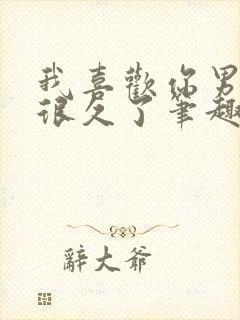 我喜歡你男
很久了筆趣
辭大爺